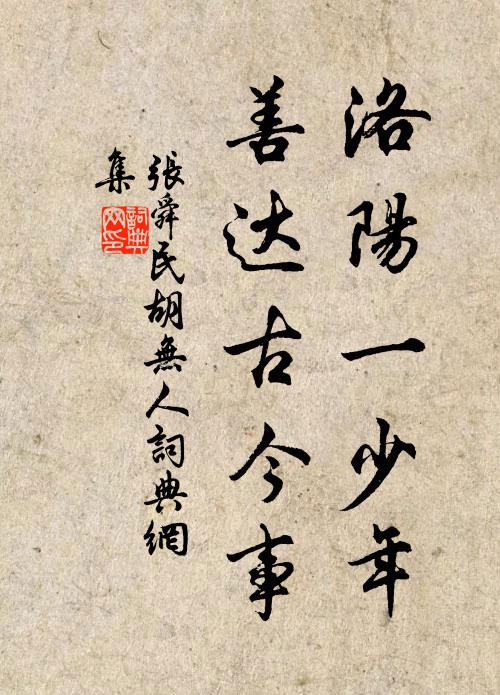 洛陽一少年
善达古今事
張舜民胡無人詞典網
集
詞典
网印